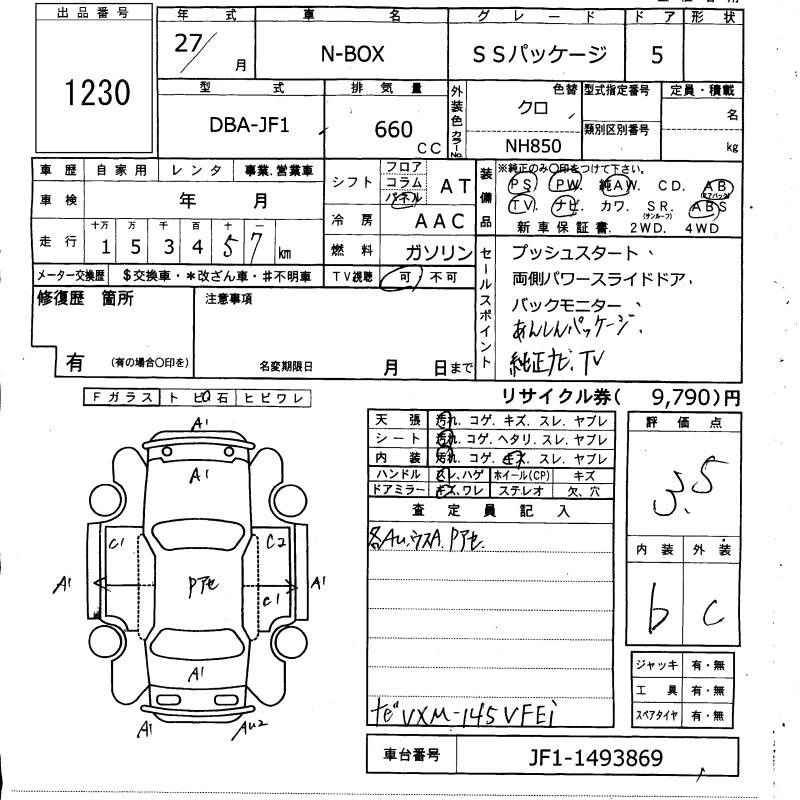 出品番号
1230
年式 車名 グレード ドア 形状
27/ 月 N-BOX SSパッケージ 5
型式 排気量 外装色 色替 型式指定番号 定員・積載
DBA-JF1 660 CC クロ 名
カラーNo. NH850 類別区別番号 kg
車歴 自家用 レンタ 事業.営業車
車検 年 月
走行 十万 万 千 百 十 一
1 5 3 4 5 7 km
メーター交換歴 $交換車・*改ざん車・#不明車
シフト フロア コラム パネル AT
冷房 AAC
燃料 ガソリン
TV視聴 可 不可
装備品 ※純正のみ〇印をつけて下さい。
PS PW 純AW. CD. AB (エアバック)
TV. ナビ カワ. SR. (サンルーフ) ABS
新車保証書. 2WD. 4WD
セールスポイント
プッシュスタート、
両側パワースライドドア、
バックモニター、
あんしんパッケージ、
純正ナビ、TV
修復歴 箇所
有 (有の場合〇印を)
注意事項
名変期限日 月 日まで
リサイクル券( 9,790)円
Fガラス トビ石 ヒビワレ
天張 汚れ. コゲ. キズ. スレ. ヤブレ
シート 汚れ. コゲ. ヘタリ. スレ. ヤブレ
内装 汚れ. コゲ. キズ. スレ. ヤブレ
ハンドル スレ、ハゲ ホイール(CP) キズ
ドアミラー キズ、ワレ ステレオ 欠、穴
査定員記入
各AU.ウスA. Pアセ.
ナビVXM-145VFEi
評価点
3.5
内装 外装
b c
ジャッキ 有・無
工具 有・無
スペアタイヤ 有・無
A1
A1
C1 C2
A1 Pアセ C1 A1
A1
A1 AU2
車台番号 JF1-1493869